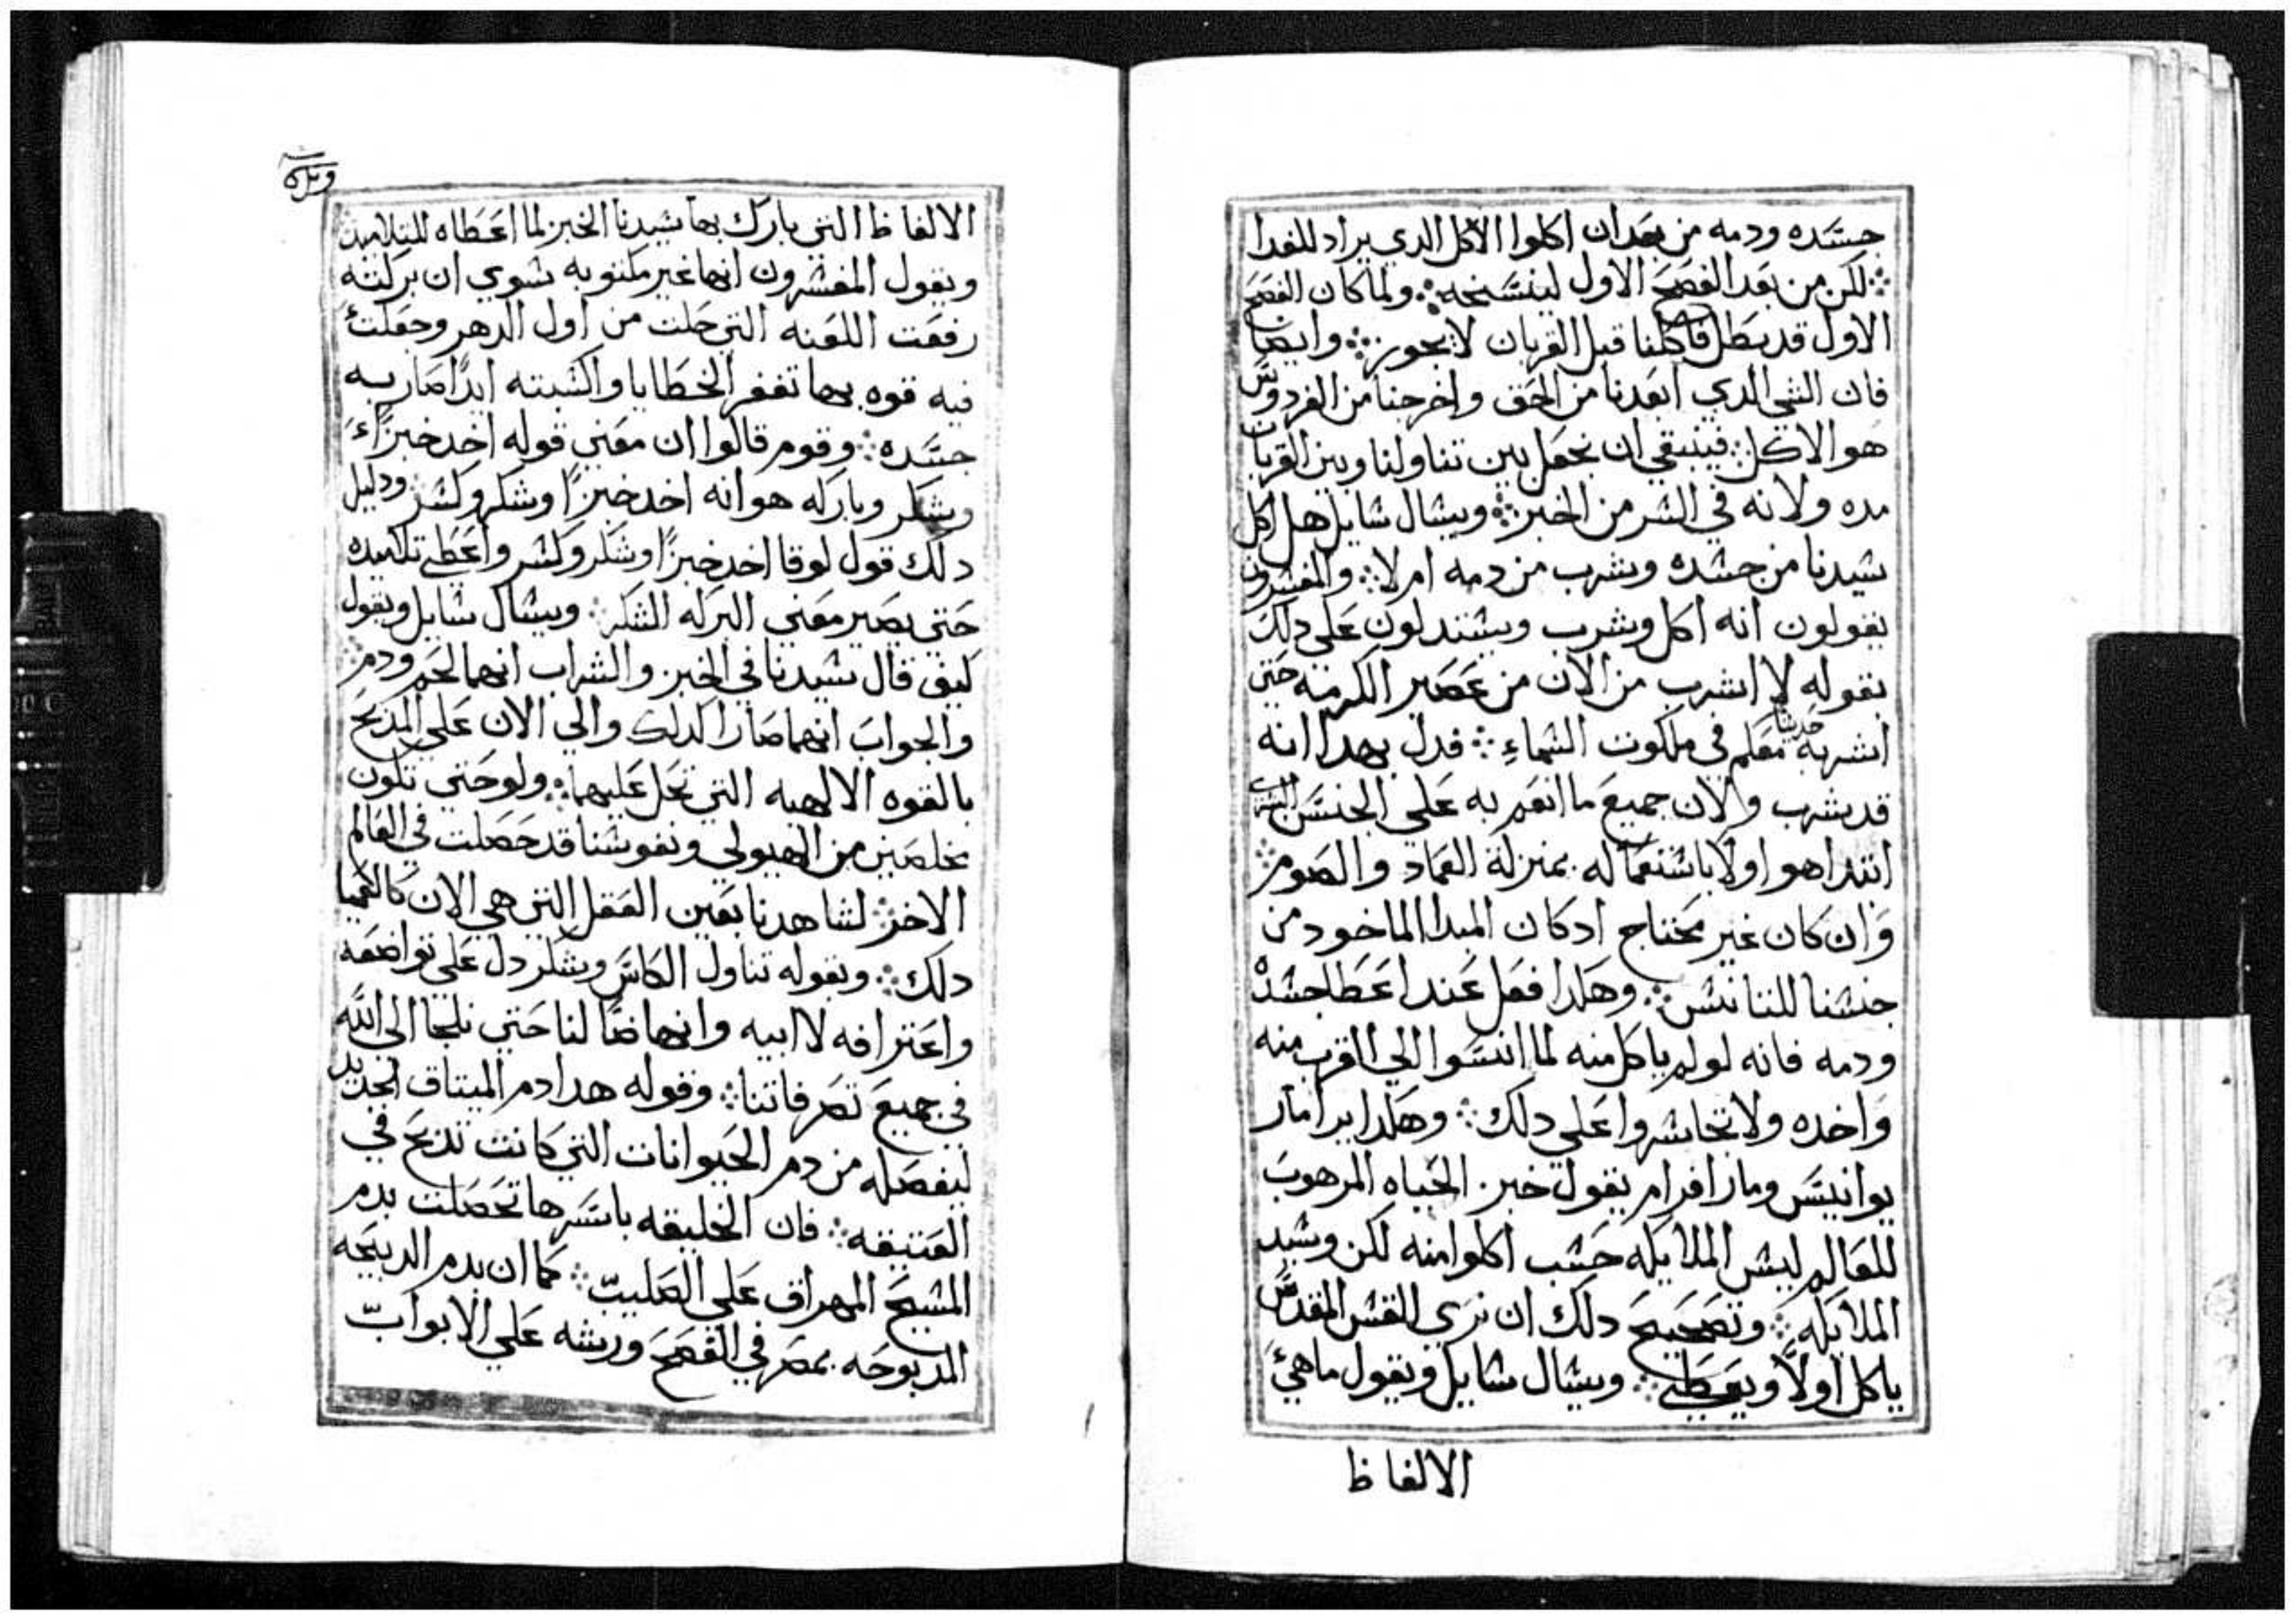 جسده ودمه من بعدان اكلوا الاكل الدي يراد للغدا
لكن من بعد الفصح الاول لينسخه ولما كان الفصح
الاول قد بطل فاكلنا قبل القربان لا يجوز وايضا
فان الشي الدي ابعدنا من الحق واخرجنا من الفردوس
هو الاكل فينبغي ان نجعل بين تناولنا وبين القربان
مده ولانه في الشر من الخبز ويسال سايل هل اكل
سيدنا من جسده وشرب من دمه ام لا والمفسرون
يقولون انه اكل وشرب ويستدلون على دلك
بقوله لا اشرب من الان من عصير الكرمه حتى
اشربه حديثا معكم في ملكوت السماء فدل بهدا انه
قد شرب ولان جميع ما انعم به على الجنس البشري
ابتدا هو اولا باستعماله بمنزلة العماد والصوم
وان كان غير محتاج ادكان المبدا الماخود من
جنسنا للتانس وهكدا فعل عند اعطا جسده
ودمه فانه لو لم ياكل منه لما انسوا الى القرب منه
واخده ولا تجاسروا على دلك وهكدا يرا مار
يوانيس ومار افرام يقول خبز الحياه المرهوب
للعالم ليس الملايكه حسب اكلوا منه لكن وسيد
الملايكه وتصحيح دلك ان نرى القس المقدس
ياكل اولا ويعطي ويسال سايل ويقول ما هي
الالفاظ
الالفاظ التي بارك بها سيدنا الخبز لما اعطاه للتلاميد
ويقول المفسرون انها غير مكتوبه سوي ان بركته
رفعت اللعنه التي حلت من اول الدهر وجعلت
فيه قوه بها تغفر الخطايا واكسبته ايدا صار به
جسده وقوم قالوا ان معنى قوله اخد خبزا
وشكر وباركه هو انه اخد خبزا وشكر وكسر ودليل
دلك قول لوقا اخد خبزا وشكر وكسر واعطى تلاميده
حتى يصير معنى البركه الشكر ويسال سايل ويقول
كيف قال سيدنا في الخبز والشراب انهما لحم ودم
والجواب انهما صارا كدلك والى الان على المدبح
بالقوه الالهيه التي تحل عليهما ولو حتى تكون
مخلصين من الهيولى ونفوسنا قد حصلت في العالم
الاخر لشاهدنا بعين العقل التي هي الان كالعميا
دلك وبقوله تناول الكاس وشكر دل على تواضعه
واعترافه لابيه وانهاضا لنا حتى نلجا الى الله
في جميع تصرفاتنا وقوله هدا دم الميتاق الجديد
ليفصله من دم الحيوانات التي كانت تدبح في
العتيقه فان الخليقه باسرها تحصلت بدم
المسيح المهراق على الصليب كما ان بدم الدبيحه
المدبوحه بمصر في الفصح ورشه على الابواب